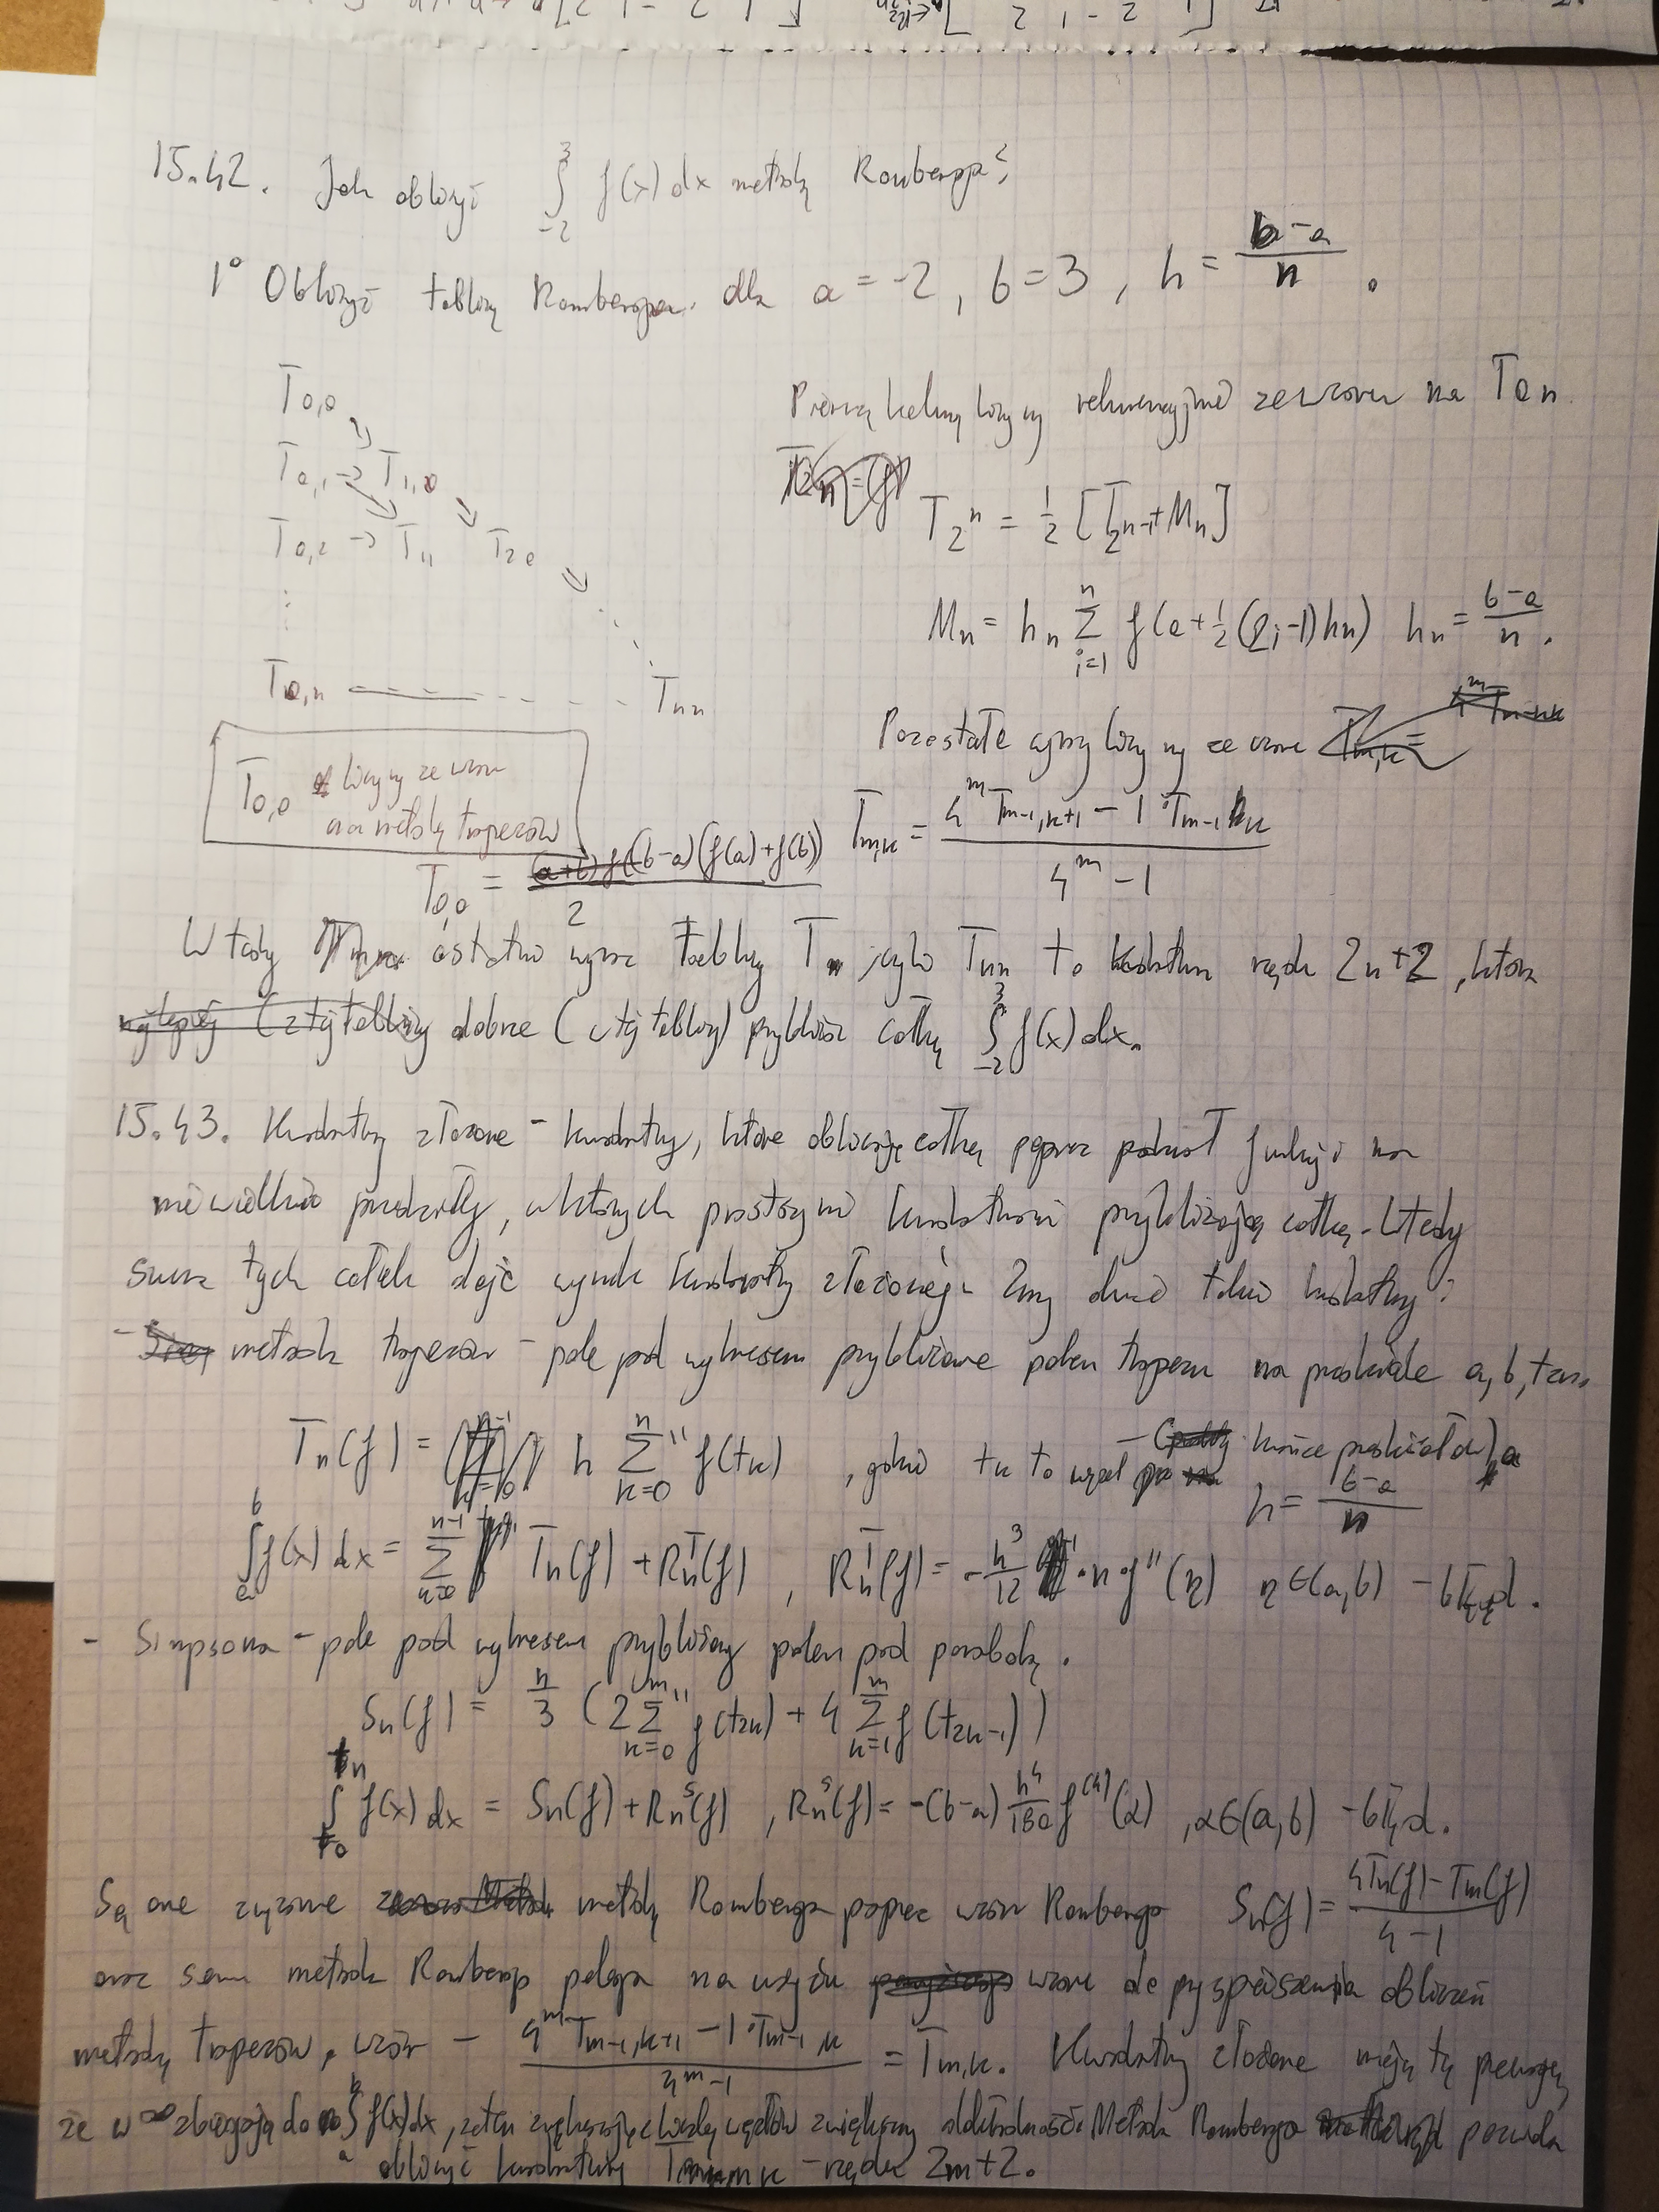 15.42. Jak obliczyć ∫_{-2}^{3} f(x) dx metodą Romberga?
1° Obliczyć tablicę Romberga dla a = -2, b = 3, h = (b-a)/n.
T_{0,0}
T_{0,1} → T_{1,0}
T_{0,2} → T_{11} T_{20}
⋮
T_{0,n} - - - - T_{nn}
Pierwszą kolumnę liczymy rekurencyjnie ze wzoru na T_{0n}
T_{2^n} = 1/2 [T_{2^{n-1}} + M_n]
M_n = h_n Σ_{i=1}^{n} f(a + 1/2 (2i-1) h_n) h_n = (b-a)/n.
Pozostałe wyrazy liczymy ze wzoru
T_{m,k} = (4^m T_{m-1,k+1} - 1·T_{m-1,k}) / (4^m - 1)
T_{0,0} liczymy ze wzoru
na metodę trapezów
T_{0,0} = (b-a)(f(a)+f(b)) / 2
Wtedy ostatni wyraz tablicy T, czyli T_{nn} to kwadratura rzędu 2n+2, która
dobrze (z tej tablicy) przybliża całkę ∫_{-2}^{3} f(x) dx.
15.43. Kwadratury złożone - kwadratury, które obliczają całkę poprzez podział funkcji na
niewielkie przedziały, w których prostszymi kwadraturami przybliżają całkę. Wtedy
suma tych całek daje wynik kwadratury złożonej. Znamy dwie takie kwadratury:
- metoda trapezów - pole pod wykresem przybliżane polem trapezu na przedziale a, b, tzn.
T_n(f) = h Σ''_{k=0}^{n} f(t_k) , gdzie t_k to węzeł - końce przedziałów), a
h = (b-a)/n
∫_a^b f(x) dx = T_n(f) + R_n^T(f) , R_n^T(f) = -h³/12 · n · f''(η) η ∈ (a,b) - błąd.
- Simpsona - pole pod wykresem przybliżamy polem pod parabolą.
S_n(f) = h/3 (2 Σ''_{k=0}^{m} f(t_{2k}) + 4 Σ_{k=1}^{m} f(t_{2k-1}))
∫_{t_0}^{t_n} f(x) dx = S_n(f) + R_n^S(f) , R_n^S(f) = -(b-a) h⁴/180 f^{(4)}(α) , α ∈ (a,b) - błąd.
Są one związane metodą Romberga poprzez wzór Romberga S_n(f) = (4T_n(f) - T_m(f)) / (4-1)
oraz sama metoda Romberga polega na użyciu wzoru do przyspieszenia obliczeń
metodą trapezów, wzór - (4^m T_{m-1,k+1} - 1·T_{m-1,k}) / (4^m - 1) = T_{m,k}. Kwadratury złożone mają tę przewagę,
że w ∞ zbiegają do ∫_a^b f(x) dx, zatem zwiększając liczbę węzłów zwiększamy dokładność. Metoda Romberga pozwala
obliczyć kwadraturę T_{m,k} - rzędu 2m+2.